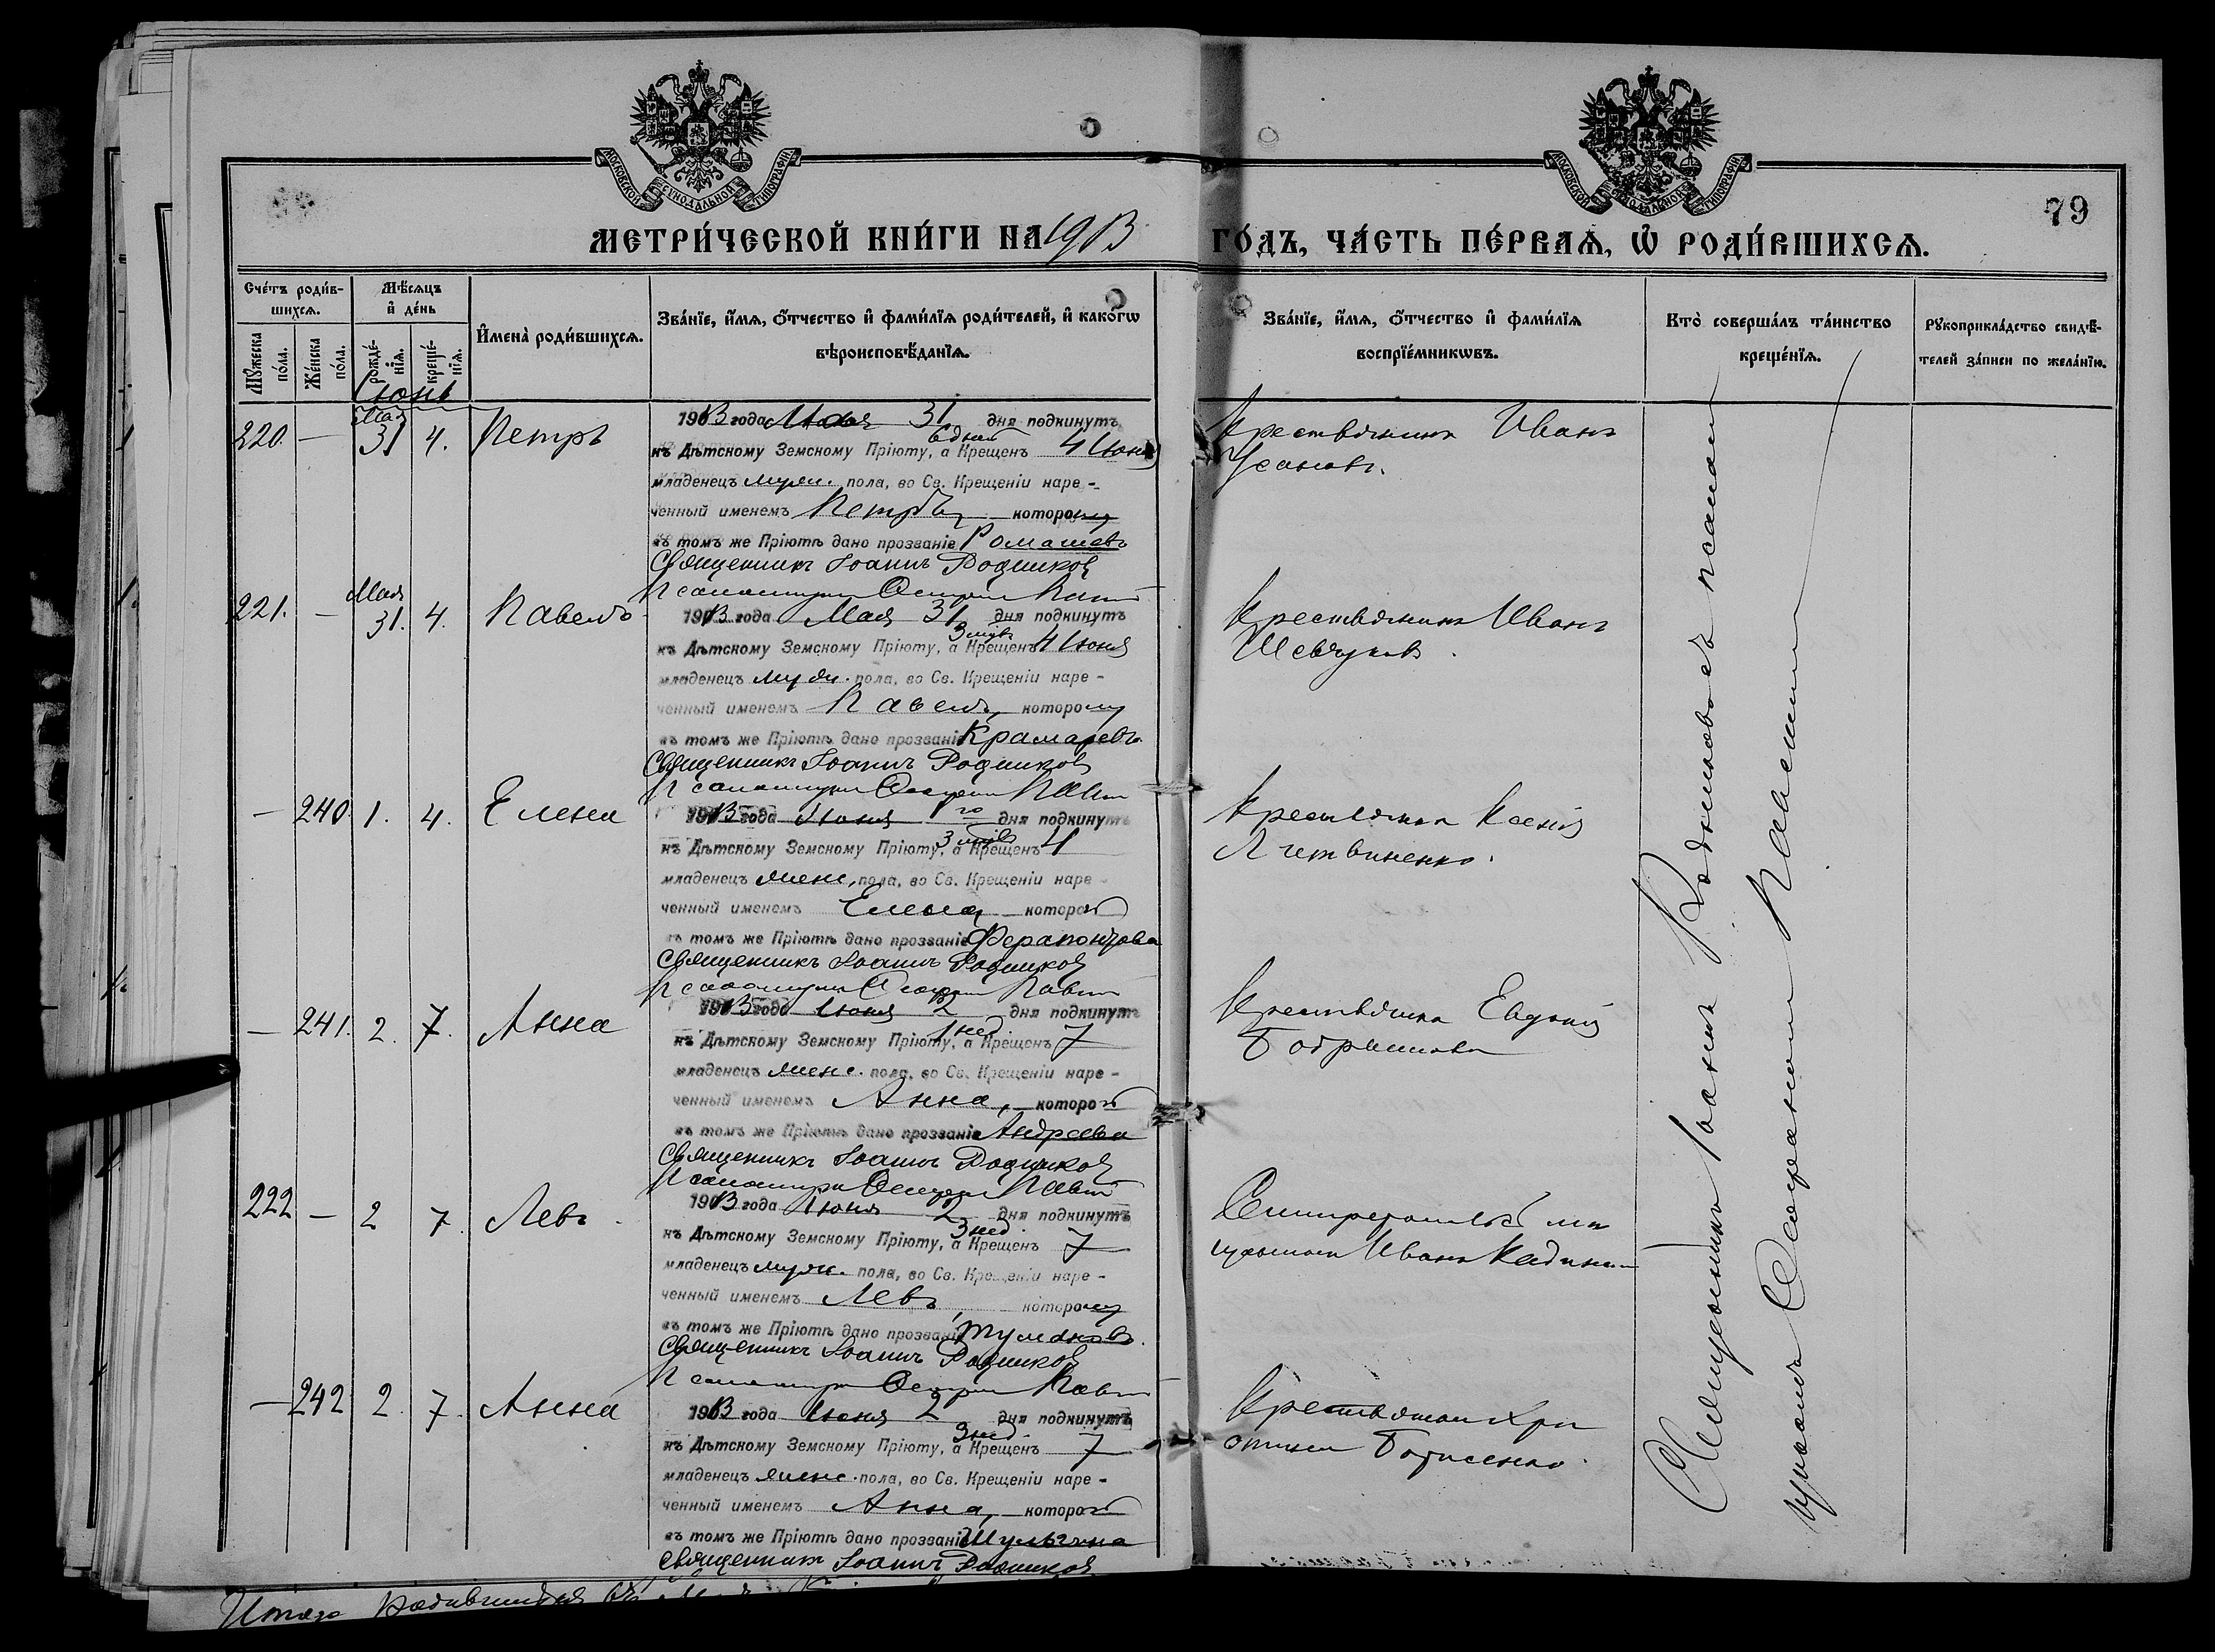 МОСКОВСКОЙ СѴНОДАЛЬНОЙ ТИПОГРАФІИ
МОСКОВСКОЙ СѴНОДАЛЬНОЙ ТИПОГРАФІИ
79
МЕТРИ́ЧЕСКОЙ КНИ́ГИ НА 1913 ГО́ДЪ, ЧА́СТЬ ПЕ́РВАѦ, Ѡ҆ РОДИ́ВШИХСѦ.
Сче́тъ роди́в-
шихсѧ.
Мꙋ́жеска по́ла.
Же́нска по́ла.
Мѣ́сѧцъ
и҆ де́нь
рожде́-
нїѧ.
креще́-
нїѧ.
И҆мена̀ роди́вшихсѧ.
Зва́нїе, и҆́мѧ, ѻ҆́тчество и҆ фами́лїѧ роди́телей, и҆ како́гѡ
вѣроисповѣ́данїѧ.
Зва́нїе, и҆́мѧ, ѻ҆́тчество и҆ фами́лїѧ
воспрїе́мникѡвъ.
Кто̀ соверша́лъ та́инство
креще́нїѧ.
Рꙋкоприкла́дство свидѣ́-
телей за́писи по жела́нїю.
Іюнь
220. — Мая 31 4. Петръ
1913 года Мая 31 дня подкинутъ
6 дней
къ Дѣтскому Земскому Пріюту, а Крещенъ 4 Іюня
младенецъ муж. пола, во Св. Крещеніи наре-
ченный именемъ Петръ, которому
въ томъ же Пріютѣ дано прозваніе Ромашевъ
Священникъ Іоаннъ Родников
Крестьянинъ Иванъ
Усановъ.
221. — Мая 31. 4. Павелъ
1913 года Мая 31 дня подкинутъ
къ Дѣтскому Земскому Пріюту, а Крещенъ 4 Іюня
младенецъ муж. пола, во Св. Крещеніи наре-
ченный именемъ Павелъ, которому
въ томъ же Пріютѣ дано прозваніе Крамаревъ
Священникъ Іоаннъ Родников
Крестьянинъ Иванъ
Шевчукъ.
— 240. 1. 4. Елена
1913 года Іюня 1го дня подкинутъ
къ Дѣтскому Земскому Пріюту, а Крещенъ 4
младенецъ женс. пола, во Св. Крещеніи наре-
ченный именемъ Елена, которой
въ томъ же Пріютѣ дано прозваніе Ферапонтова
Священникъ Іоаннъ Родников
Крестьянка Ксенія
Литвиненко.
— 241. 2. 7. Анна
1913 года Іюня 2 дня подкинутъ
1 нед.
къ Дѣтскому Земскому Пріюту, а Крещенъ 7
младенецъ женс. пола, во Св. Крещеніи наре-
ченный именемъ Анна, которой
въ томъ же Пріютѣ дано прозваніе Андреева
Священникъ Іоаннъ Родников
Крестьянка Евдокія
222 — 2 7. Левъ
1913 года Іюня 2 дня подкинутъ
3 нед.
къ Дѣтскому Земскому Пріюту, а Крещенъ 7
младенецъ муж. пола, во Св. Крещеніи наре-
ченный именемъ Левъ, которому
въ томъ же Пріютѣ дано прозваніе Тумановъ.
Священникъ Іоаннъ Родников
Иванъ
— 242 2. 7. Анна
1913 года Іюня 2 дня подкинутъ
3 нед.
къ Дѣтскому Земскому Пріюту, а Крещенъ 7
младенецъ женс. пола, во Св. Крещеніи наре-
ченный именемъ Анна, которой
въ томъ же Пріютѣ дано прозваніе Шульгина
Священникъ Іоаннъ Родников
Крестьянка Хри
стина Борисенко.
Священникъ Іоаннъ Родниковъ съ псалом
щикомъ
Итого родившихся